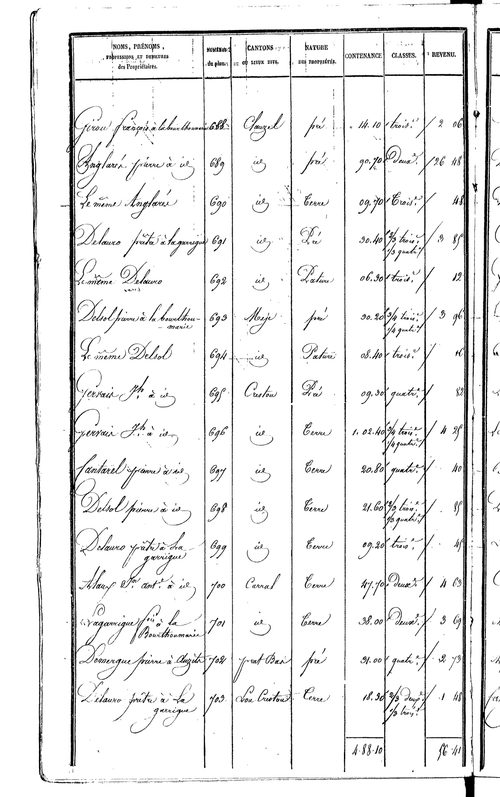 NOMS, PRÉNOMS, PROFESSION ET DEMEURES des Propriétaires. NUMÉROS du plan. CANTONS OU LIEUX DITS. NATURE DES PROPRIÉTÉS. CONTENANCE CLASSES. REVENU.
Girou françois à la bourlhoumarie 688 Clauzel pré 14.10 trois.e 2 06
Anglarés pierre à id 689 id pré 90.70 Deux.e 26 48
Le même Anglarés 690 id Terre 09.70 Trois.e 48
Delauro prêtre à la garrigue 691 id Pré 30.40 2/3 trois.e 1/3 quatr.e 3 85
Le même Delauro 692 id Pature 06.30 trois.e 12
Delsol pierre à la bourlhoumarie 693 Meje pré 30.20 3/4 trois.e 1/4 quatr.e 3 96
Le même Delsol 694 id Pature 08.40 trois.e 16
Gervais Jh. à id 695 Creston Pré 09.30 quatr.e 82
Gervais Jh. à id 696 id Terre 1.02.40 3/4 trois.e 1/4 quatr.e 4 25
Cantarel pierre à id 697 id Terre 20.80 quatr.e 40
Delsol pierre à id 698 id Terre 21.60 2/3 trois.e 1/3 quatr.e 85
Delauro prêtre à La garrigue 699 id Terre 09.20 trois.e 45
Alaux Jn. ant.e à id 700 Carral Terre 47.70 Deux.e 4 63
Lagarrigue à la Bourlhoumarie 701 id Terre 38.00 Deux.e 3 69
Domergue pierre à 702 prat Bas pré 31.00 quatr.e 2 73
Delauro prêtre à La garrigue 703 Lou Creston Terre 18.30 2/3 deux.e 1/3 trois.e 1 48
4.88.10 56.41